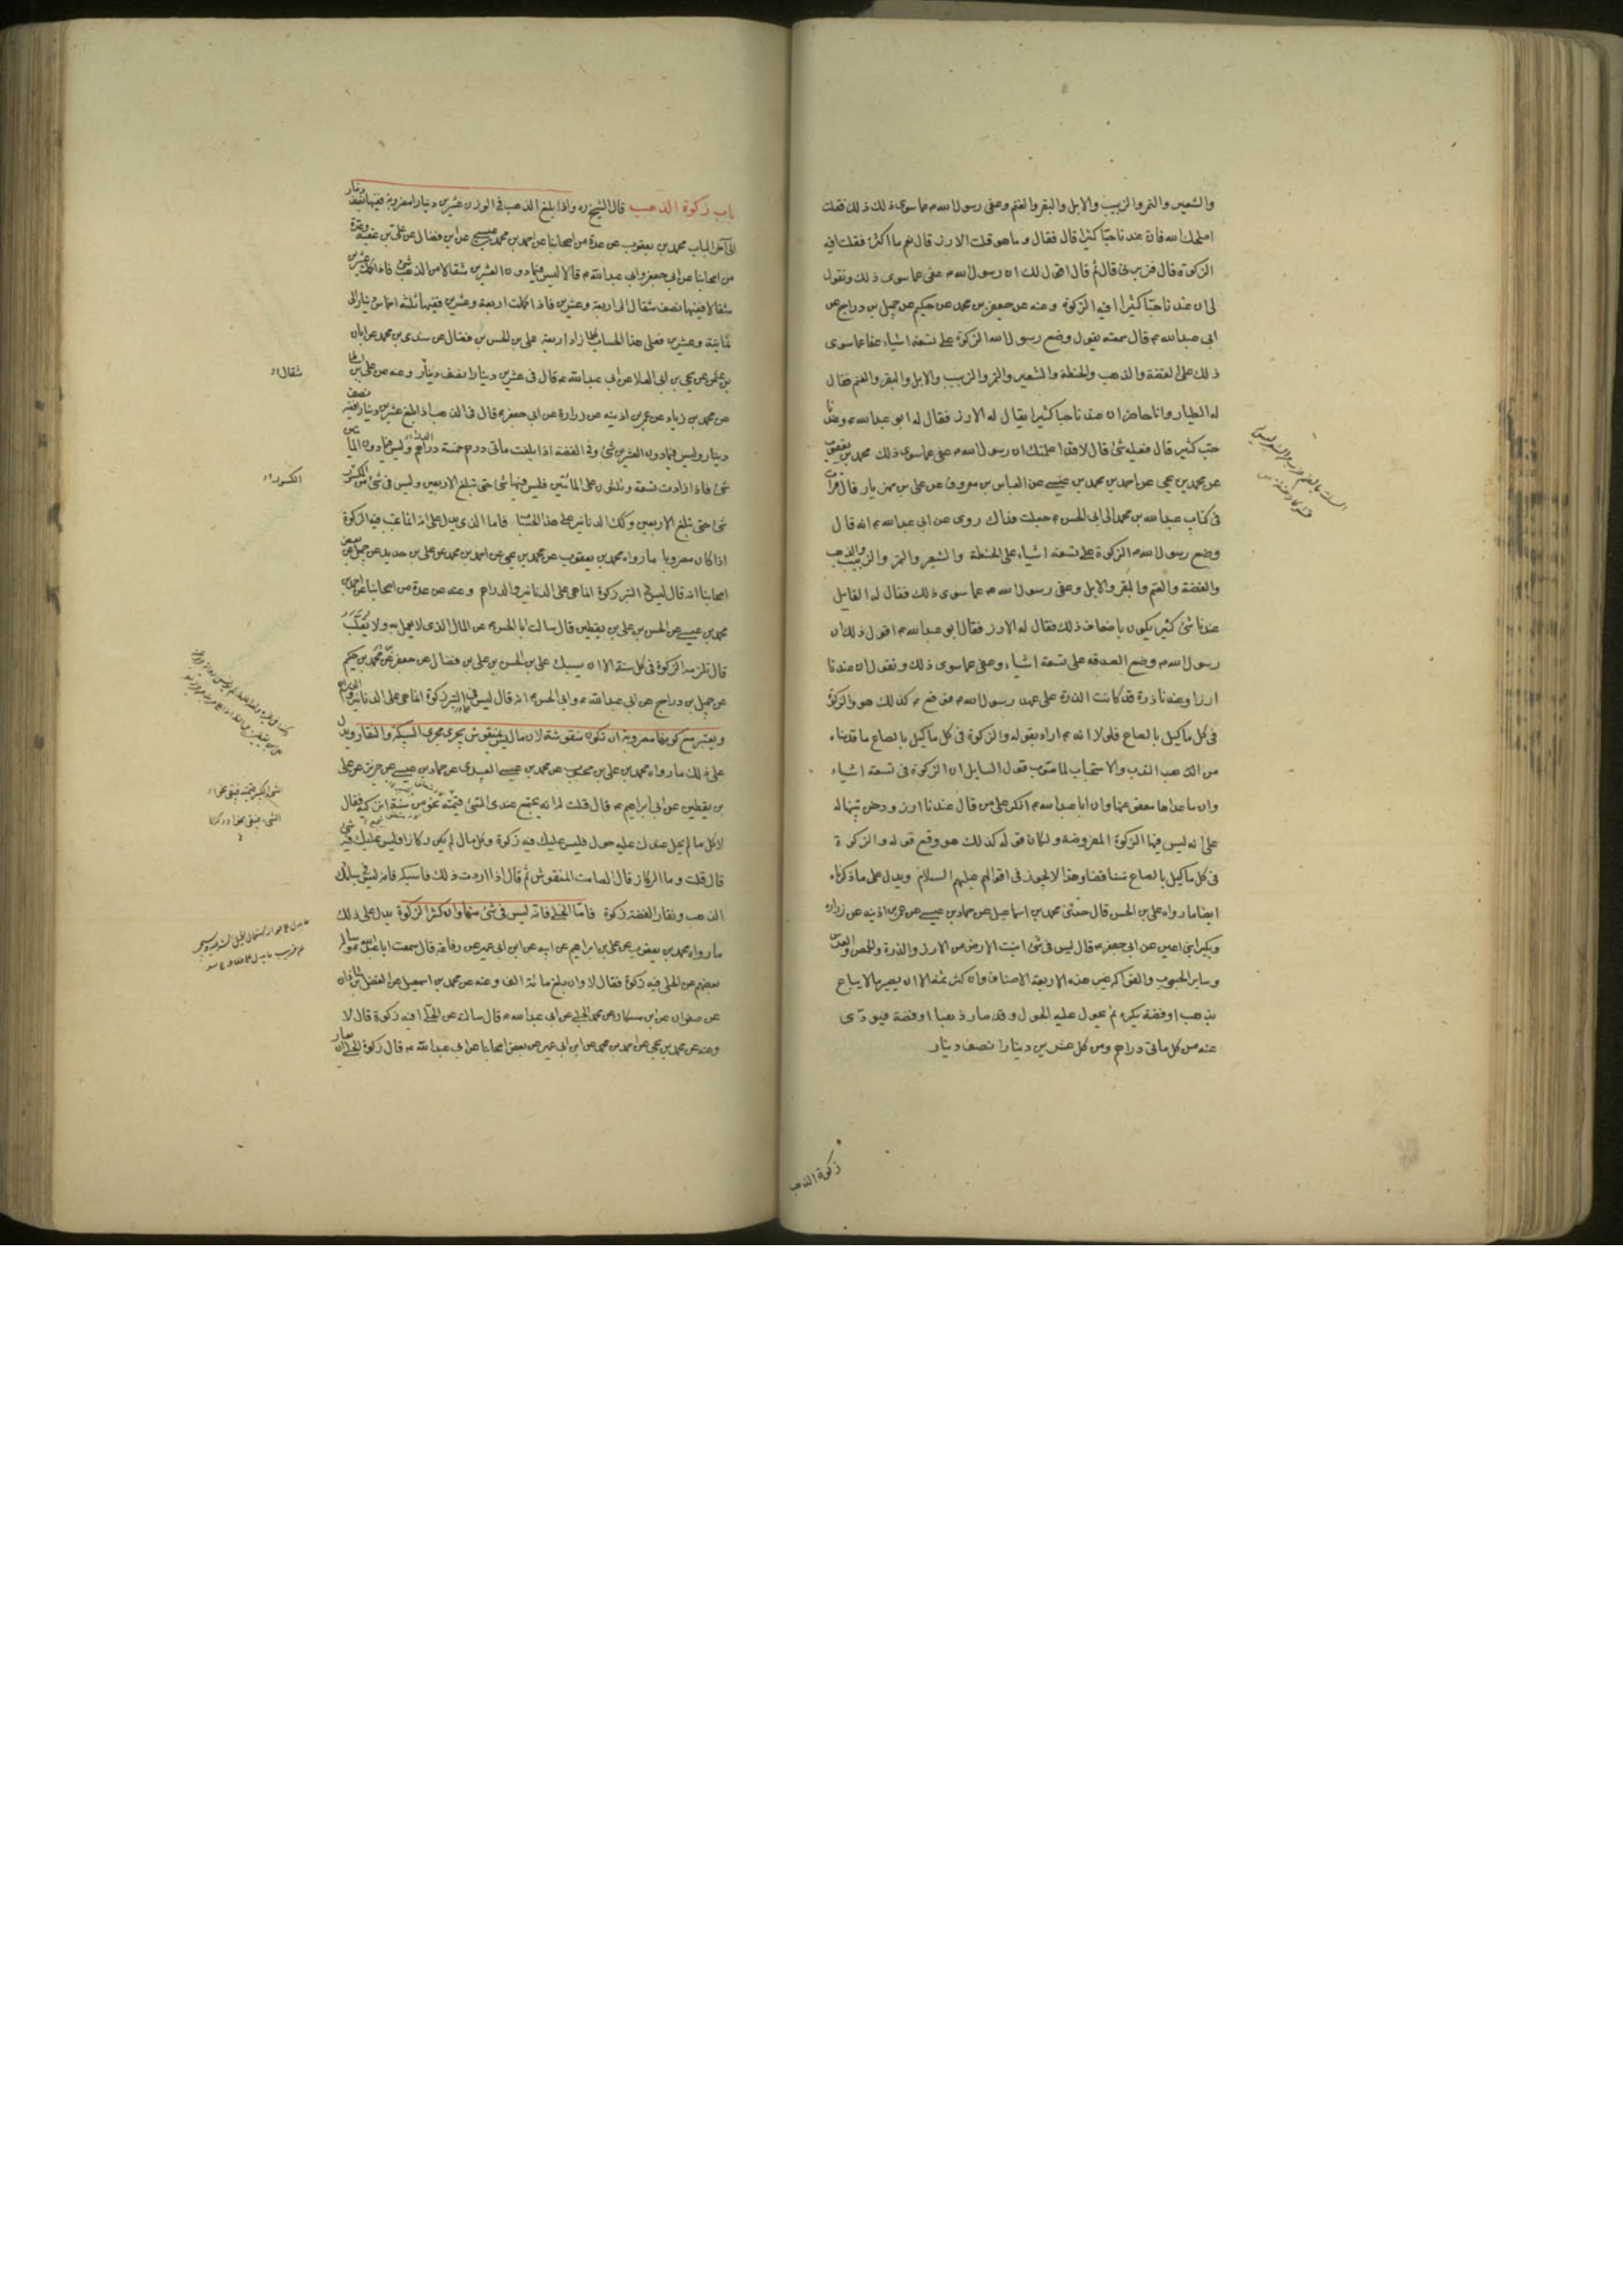 والشعير والتمر والزبيب والابل والبقر والغنم وعفى رسول الله ص عما سوى ذلك فقلت
اصلحك الله فان عندنا حبا كثيرا قال فقال وما هو قلت الارز قال نعم ما اكثره فقلت افيه
الزكوة قال فزبرنى قال ثم قال اقول لك ان رسول الله ص عفى عما سوى ذلك وتقول
لى ان عندنا حبا كثيرا افيه الزكوة وعنه عن جعفر بن محمد عن حكيم عن جميل بن دراج عن
ابى عبد الله ع قال سمعته يقول وضع رسول الله الزكوة على تسعة اشياء عفا عما سوى
ذلك على الفضة والذهب والحنطة والشعير والتمر والزبيب والابل والبقر والغنم فقال
له الطيار وانا حاضر ان عندنا حبا كثيرا يقال له الارز فقال له ابو عبد الله ع وعندنا
حب كثير قال فعليه شئ قال لا قد اعلمتك ان رسول الله ص عفى عما سوى ذلك محمد بن يعقوب
عن محمد بن يحيى عن احمد بن محمد بن عيسى عن العباس بن معروف عن على بن مهزيار قال قرات
فى كتاب عبد الله بن محمد الى ابى الحسن ع جعلت فداك روى عن ابى عبد الله ع انه قال
وضع رسول الله ص الزكوة على تسعة اشياء على الحنطة والشعير والتمر والزبيب والذهب
والفضة والغنم والبقر والابل وعفى رسول الله ص عما سوى ذلك فقال له القايل
عندنا شئ كثير يكون باضعاف ذلك فقال له الارز فقال ابو عبد الله ع اقول لك ان
رسول الله ص وضع الصدقه على تسعة اشياء وعفى عما سوى ذلك وتقول ان عندنا
ارزا وعندنا ذرة قد كانت الذرة على عهد رسول الله ص فوقع ع كذلك هو والزكوة
فى كل ما كيل بالصاع فلولا انه ع اراد بقوله والزكوة فى كل ما كيل بالصاع ما قدمناه
من الندب والاستحباب لما صوب قول السايل ان الزكوة فى تسعة اشياء
وان ما عداها معفو عنها وان ابا عبد الله ع انكر على من قال عندنا ارز ودخن تنبيها له
على انه ليس فيها الزكوة المفروضة ولكان قوله كذلك هو وقع قوله والزكوة
فى كل ما كيل بالصاع متناقضا وهذا لا يجوز فى اقوالهم عليهم السلام ويدل على ما ذكرناه
ايضا ما رواه على بن الحسن قال حدثنى محمد بن اسماعيل عن حماد بن عيسى عن عمر بن اذينه عن زراره
وبكير ابنى اعين عن ابى جعفر ع قال ليس فى شئ انبتت الارض من الارز والذرة والحمص والعدس
وساير الحبوب والفواكه غير هذه الاربعة الاصناف وان كثر ثمنه الا ان يصير مالا يباع
بذهب او فضة يكنزه ثم يحول عليه الحول وقد صار ذهبا او فضة فيؤدى
عنه من كل مائتى دراهم ومن كل عشرين دينارا نصف دينار
زكوة الذهب
باب زكوة الذهب قال الشيخ ره واذا بلغ الذهب فى الوزن عشرين دينارا مضروبة ففيها نصف دينار
الى آخر الباب محمد بن يعقوب عن عدة من اصحابنا عن احمد بن محمد بن عيسى عن ابن فضال عن على بن عقبة وعدة
من اصحابنا عن ابى جعفر وابى عبد الله ع قالا ليس فيما دون العشرين مثقالا من الذهب شئ فاذا كملت عشرين
مثقالا ففيها نصف مثقال الى اربعة وعشرين فاذا كملت اربعة وعشرين ففيها ثلثة اخماس دينار الى
ثمانية وعشرين فعلى هذا الحساب كلما زاد اربعة على بن الحسن بن فضال عن سندى بن محمد عن ابان
بن عثمن عن يحيى بن ابى العلا عن ابى عبد الله ع قال فى عشرين دينارا نصف دينار وعنه عن على بن اسباط
مثقال
عن محمد بن زياد عن عمر بن اذينه عن زرارة عن ابى جعفر ع قال فى الذهب اذا بلغ عشرين دينارا ففيه نصف
دينار وليس فيما دون العشرين شئ وفى الفضة اذا بلغت مائتى درهم خمسة دراهم وليس فيما دون المائتين
شئ فاذا زادت تسعة وثلثون على المائتين فليس فيها شئ حتى تبلغ الاربعين وليس فى شئ من الكسور
الكسور
شئ حتى تبلغ الاربعين وكذلك الدنانير على هذا الحساب فاما الذى يدل على انه انما تجب فيه الزكوة
اذا كان مضروبا ما رواه محمد بن يعقوب عن محمد بن يحيى عن احمد بن محمد عن على بن حديد عن جميل عن بعض
اصحابنا انه قال ليس فى التبر زكوة انما هى على الدنانير والدراهم وعنه عن عدة من اصحابنا عن احمد بن
محمد بن عيسى عن الحسن بن على بن يقطين قال سالت ابا الحسن ع عن المال الذى لا يعمل به ولا يقلب
قال تلزمه الزكوة فى كل سنة الا ان يسبك على بن الحسن بن على بن فضال عن جعفر بن محمد بن حكيم
عن جميل بن دراج عن ابى عبد الله ع وابى الحسن ع انه قال ليس فى التبر زكوة انما هى على الدنانير والدراهم
ويعتبر مع كونها مضروبة ان تكون منقوشة لان ما ليس بمنقوش يجرى مجرى السبيكة والنقار ويدل
على ذلك ما رواه محمد بن على بن محبوب عن محمد بن عيسى العبيدى عن حماد بن عيسى عن حريز عن على
بن يقطين عن ابى ابراهيم ع قال قلت له انه يجتمع عندى الشئ قيمته نحو من سنة انزكيه فقال
لا كل ما لم يحل عندك عليه حول فليس عليك فيه زكوة وكل مال لم يكن ركازا فليس عليك فيه شئ
قال قلت وما الركاز قال الصامت المنقوش ثم قال اذا اردت ذلك فاسبكه فانه ليس فى سبائك
الذهب ونقار الفضة زكوة فاما الحلى فانه ليس فى شئ منها وان كثر الزكوة يدل على ذلك
ما رواه محمد بن يعقوب عن على بن ابراهيم عن ابيه عن ابن ابى عمير عن رفاعة قال سمعت ابا عبد الله ع وساله
بعضهم عن الحلى فيه زكوة فقال لا وان بلغ مائة الف وعنه عن محمد بن اسمعيل عن الفضل بن شاذان
عن صفوان عن ابن مسكان عن محمد الحلبى عن ابى عبد الله ع قال سالته عن الحلى افيه زكوة قال لا
وعنه عن محمد بن يحيى عن احمد بن محمد عن ابن ابى عمير عن بعض اصحابنا عن ابى عبد الله ع قال زكوة الحلى ان يعار